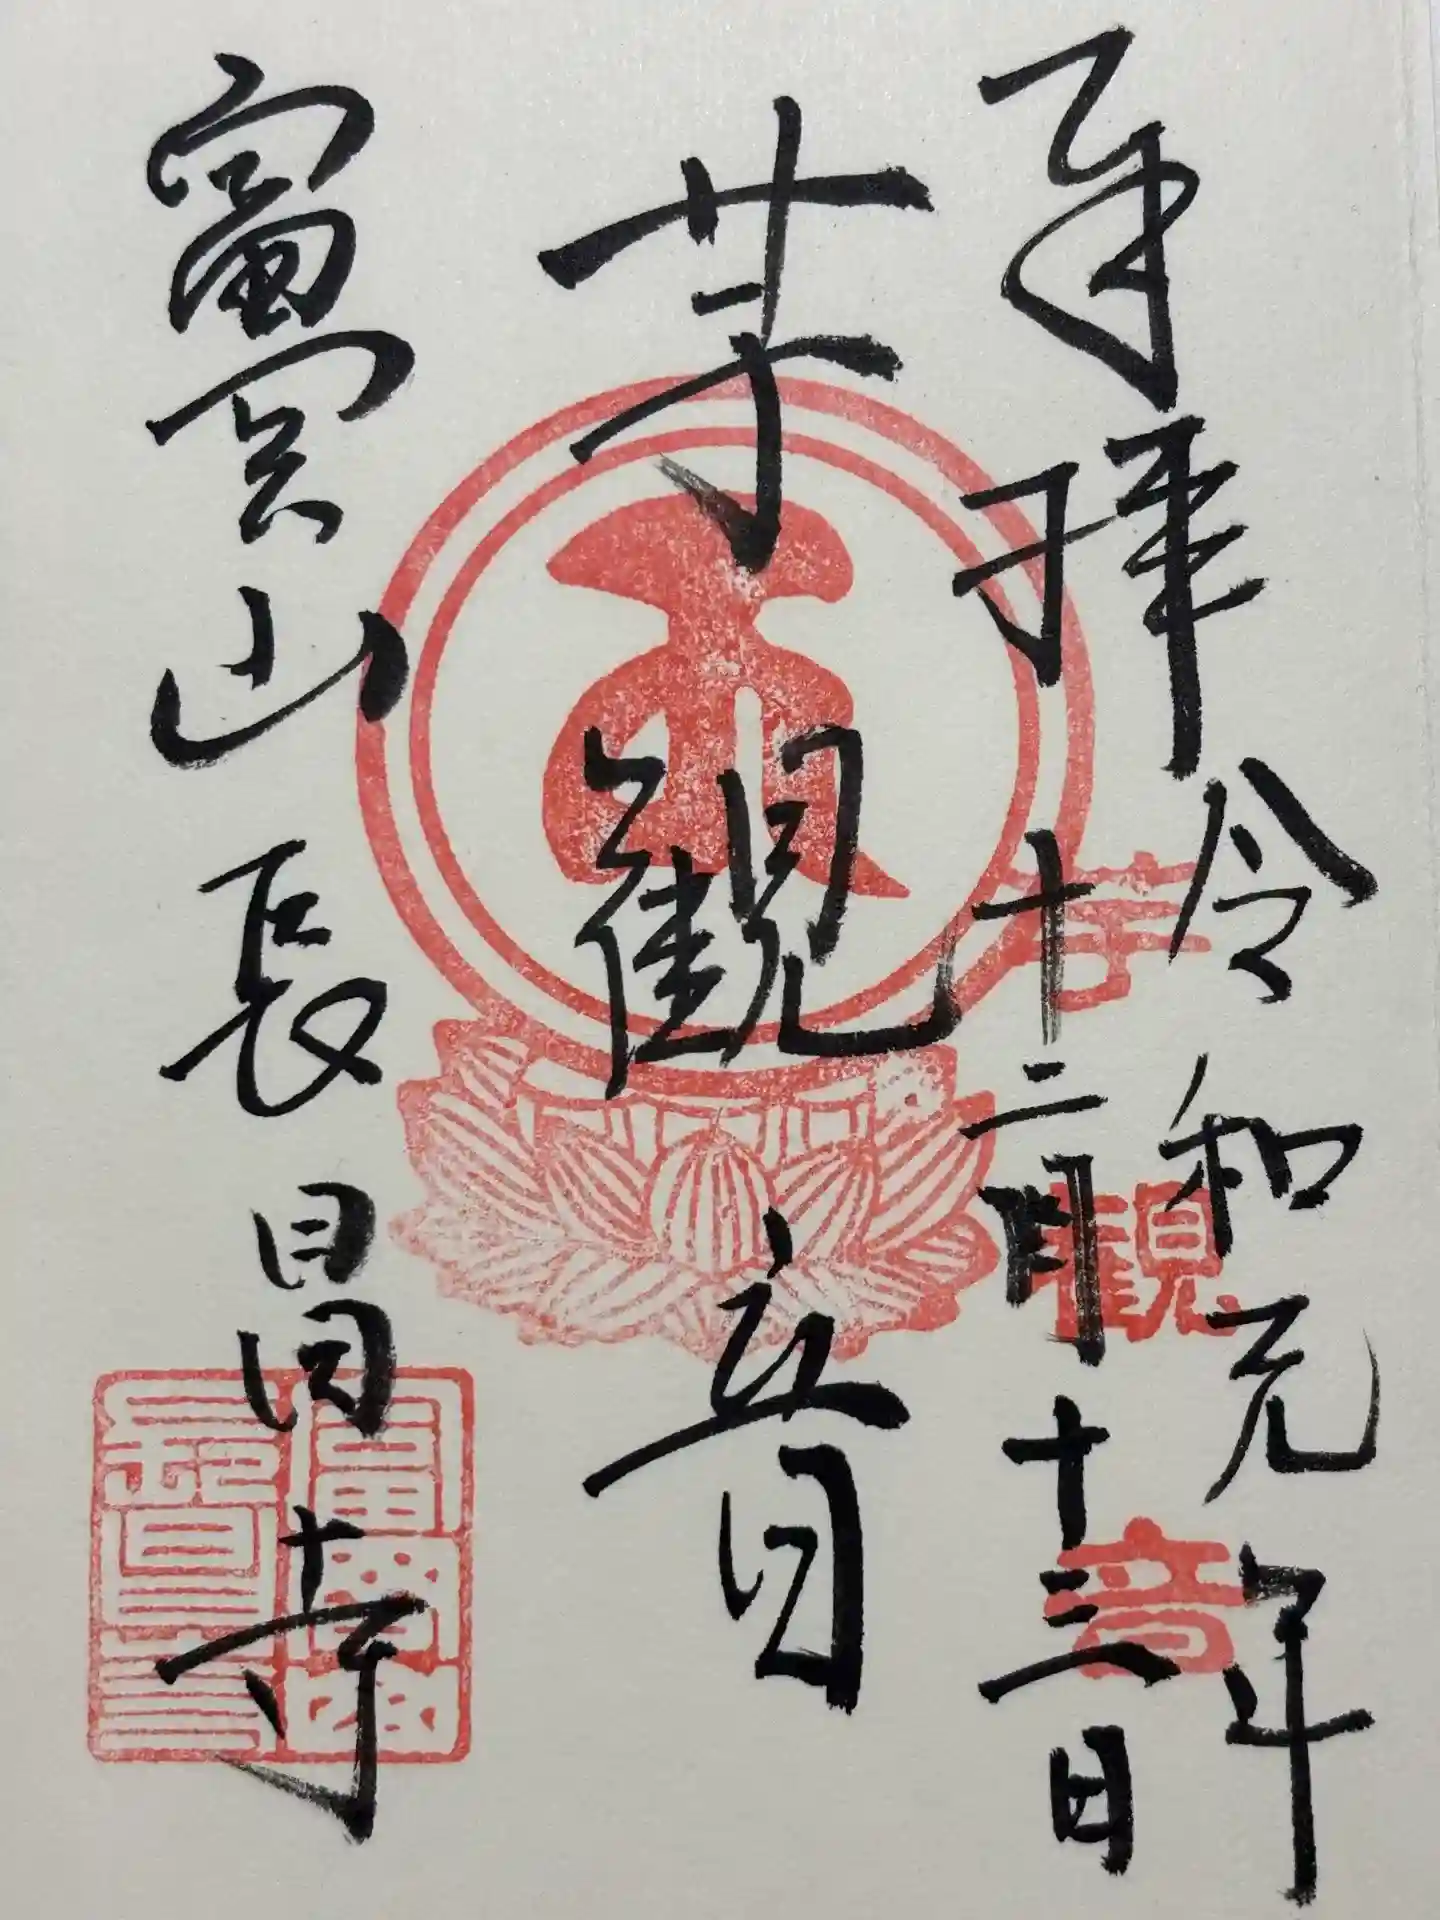 奉拝
令和元年
十二月十三日
芋観音
芋観音
富岡山長昌寺
富岡山
長昌寺